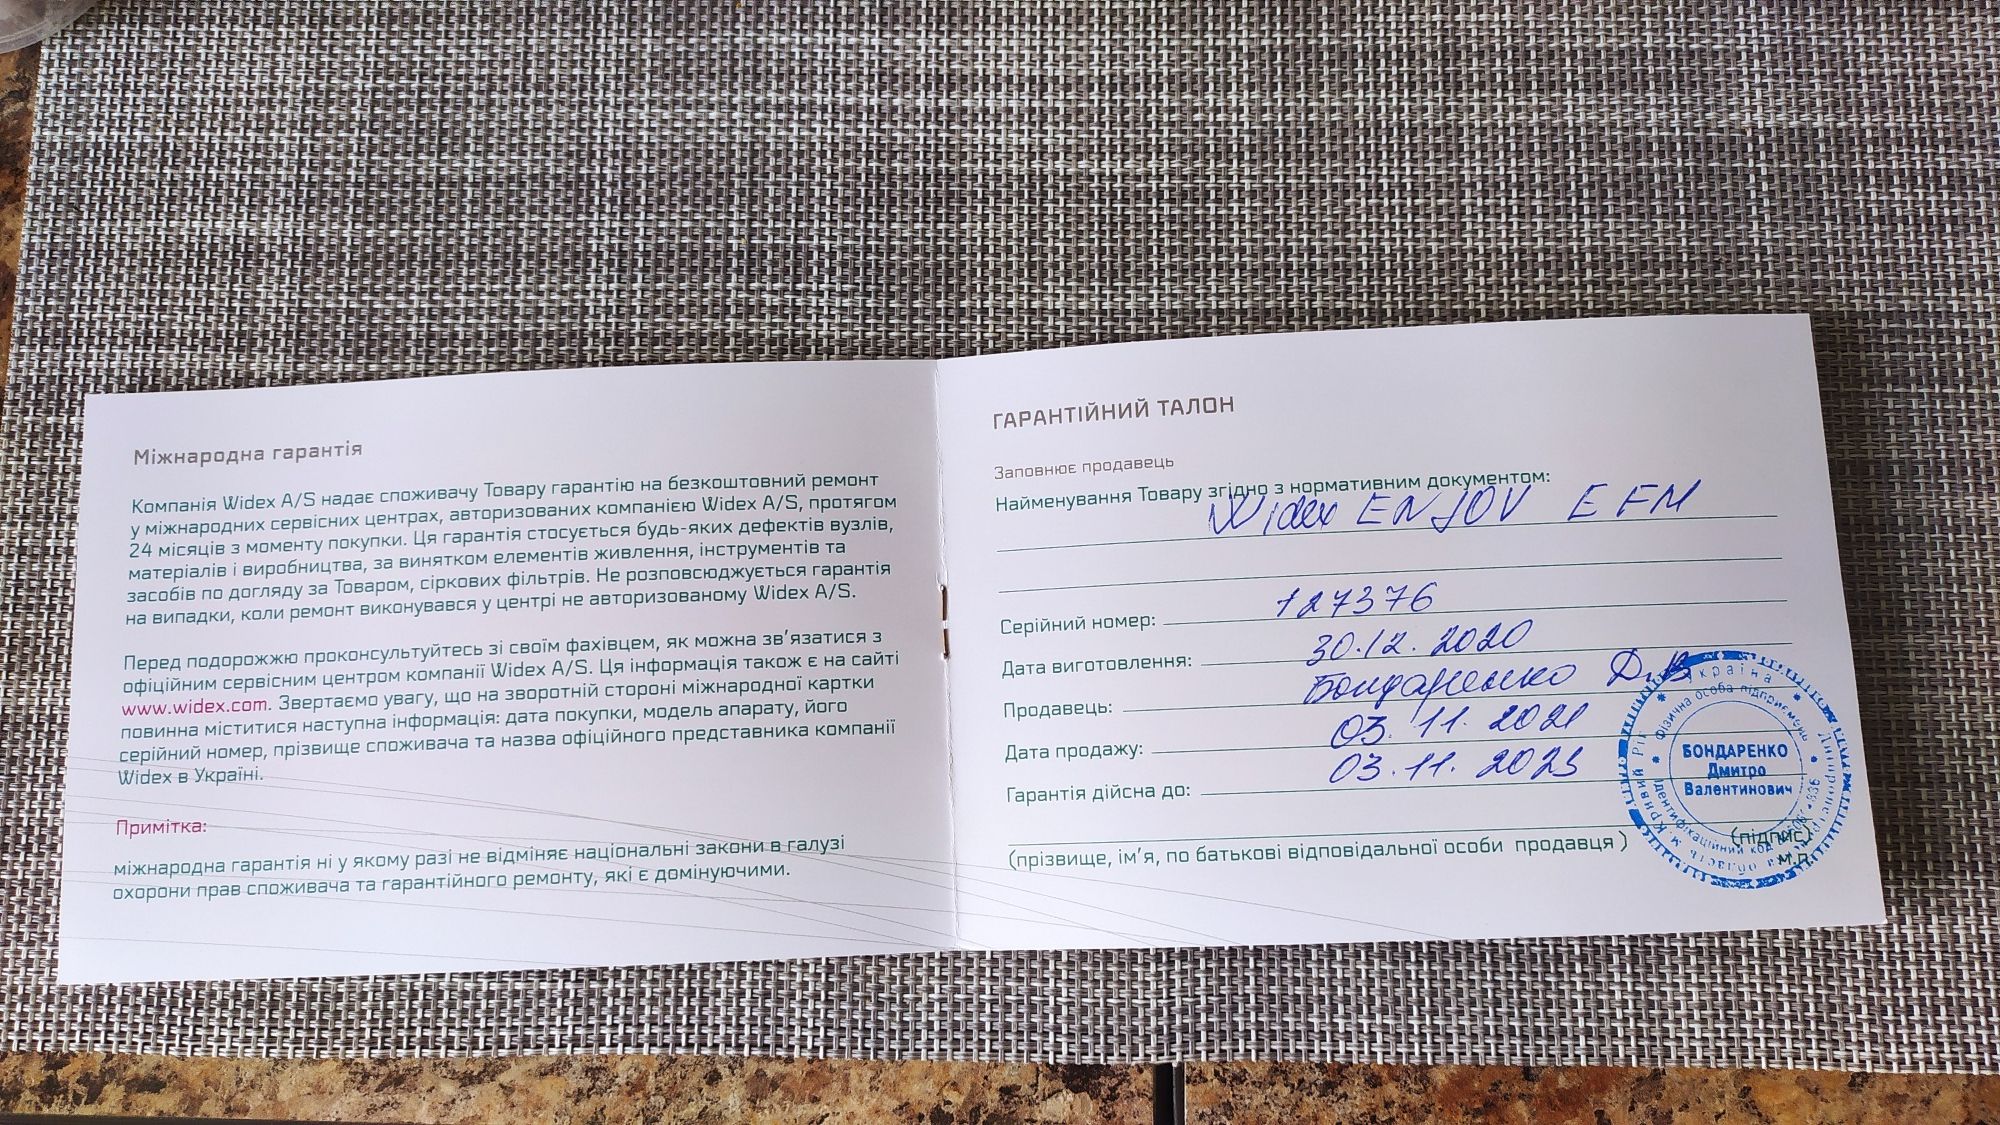 Міжнародна гарантія
Компанія Widex A/S надає споживачу Товару гарантію на безкоштовний ремонт
у міжнародних сервісних центрах, авторизованих компанією Widex A/S, протягом
24 місяців з моменту покупки. Ця гарантія стосується будь-яких дефектів вузлів,
матеріалів і виробництва, за винятком елементів живлення, інструментів та
засобів по догляду за Товаром, сіркових фільтрів. Не розповсюджується гарантія
на випадки, коли ремонт виконувався у центрі не авторизованому Widex A/S.
Перед подорожжю проконсультуйтесь зі своїм фахівцем, як можна зв'язатися з
офіційним сервісним центром компанії Widex A/S. Ця інформація також є на сайті
www.widex.com. Звертаємо увагу, що на зворотній стороні міжнародної картки
повинна міститися наступна інформація: дата покупки, модель апарату, його
серійний номер, прізвище споживача та назва офіційного представника компанії
Widex в Україні.
Примітка:
міжнародна гарантія ні у якому разі не відміняє національні закони в галузі
охорони прав споживача та гарантійного ремонту, які є домінуючими.
ГАРАНТІЙНИЙ ТАЛОН
Заповнює продавець
Найменування Товару згідно з нормативним документом:
Widex ENJOY E FM
Серійний номер: 127376
Дата виготовлення: 30.12.2020
Продавець: Бондаренко Д.В
Дата продажу: 03.11.2021
Гарантія дійсна до: 03.11.2023
(прізвище, ім'я, по батькові відповідальної особи продавця ) (підпис)
м.п.
Україна
Дніпропетровська область м. Кривий Ріг
Фізична особа підприємець
Ідентифікаційний код
БОНДАРЕНКО
Дмитро
Валентинович